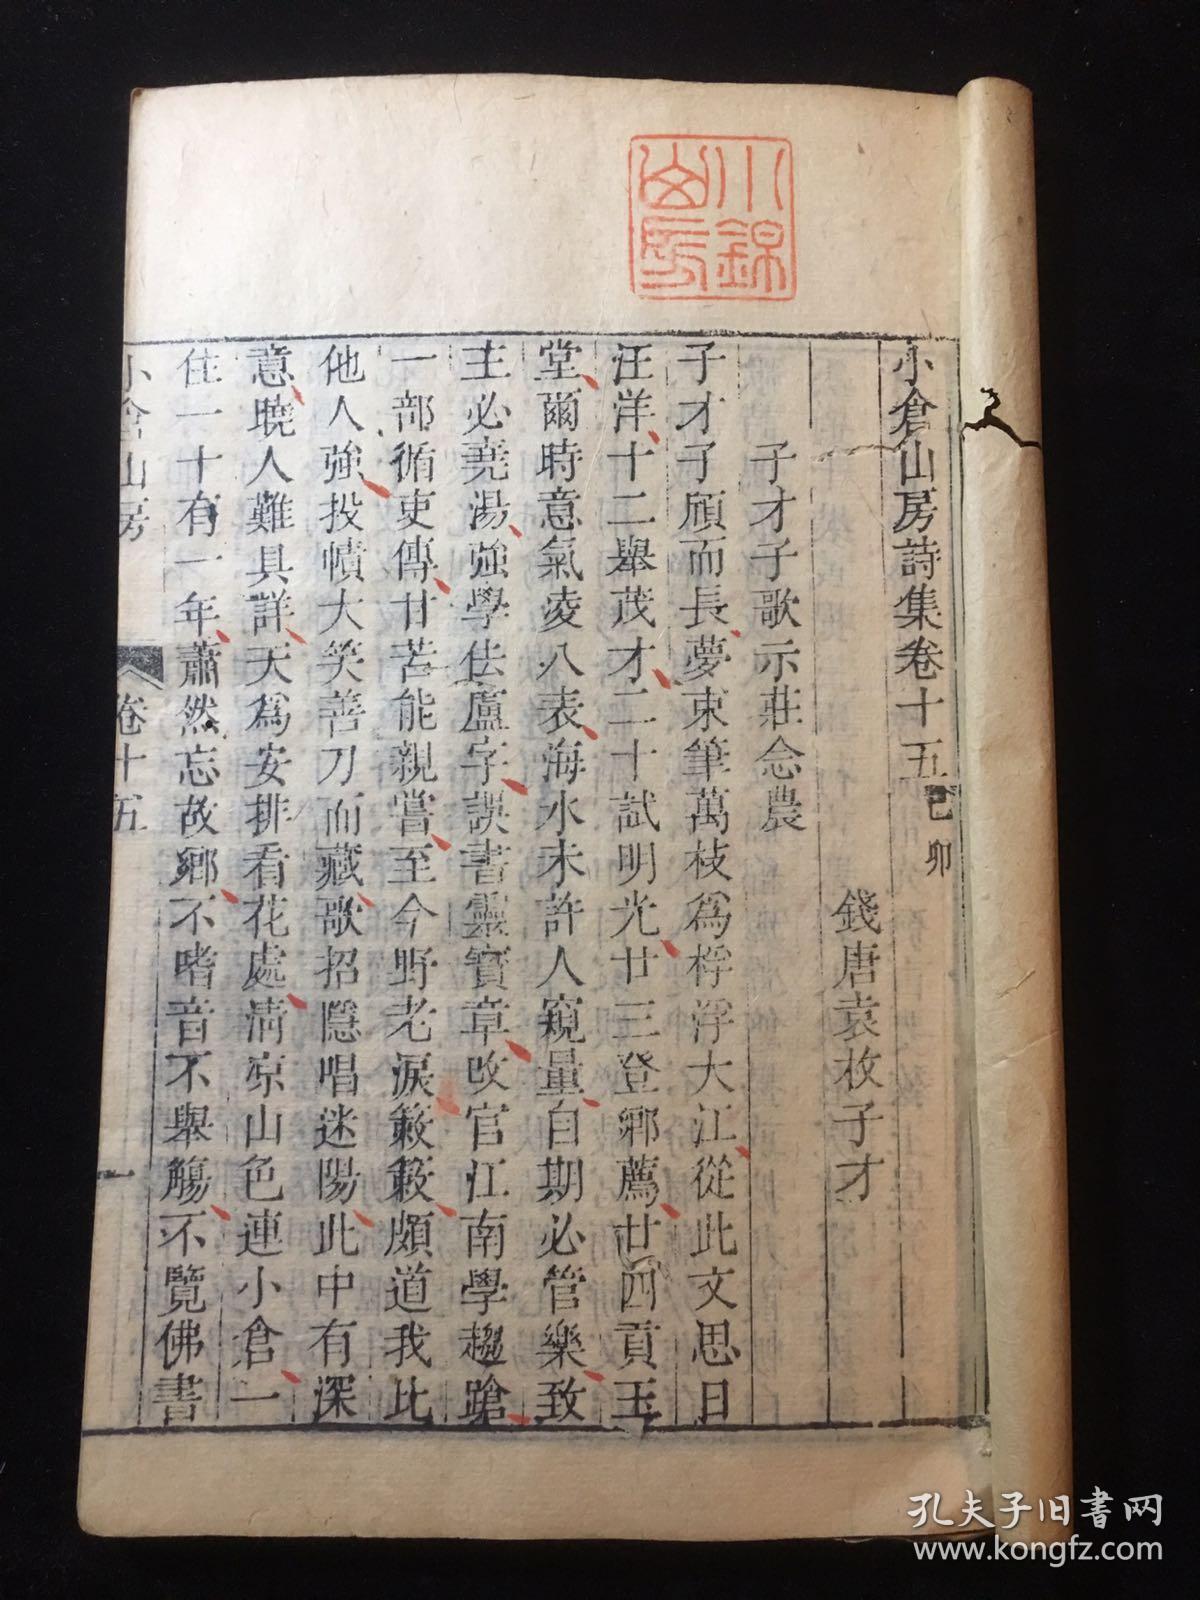 小錦
山房
小倉山房詩集卷十五 己卯
錢唐袁枚子才
子才子歌示莊念農
子才子頎而長夢束筆萬枝爲桴浮大江從此文思日
汪洋十二舉茂才二十試明光廿三登鄉薦廿四貢玉
堂爾時意氣凌八表海水未許人窺量自期必管樂致
主必堯湯強學佉盧字誤書靈寶章改官江南學趨蹌
一部循吏傳甘苦能親嘗至今野老淚簌簌頗道我比
他人強投幘大笑善刀而藏歌招隱唱迷陽此中有深
意曉人難具詳天爲安排看花處清涼山色連小倉一
住一十有一年蕭然忘故鄉不嗜音不舉觴不覽佛書
小倉山房
卷十五
一
孔夫子旧书网
www.kongfz.com